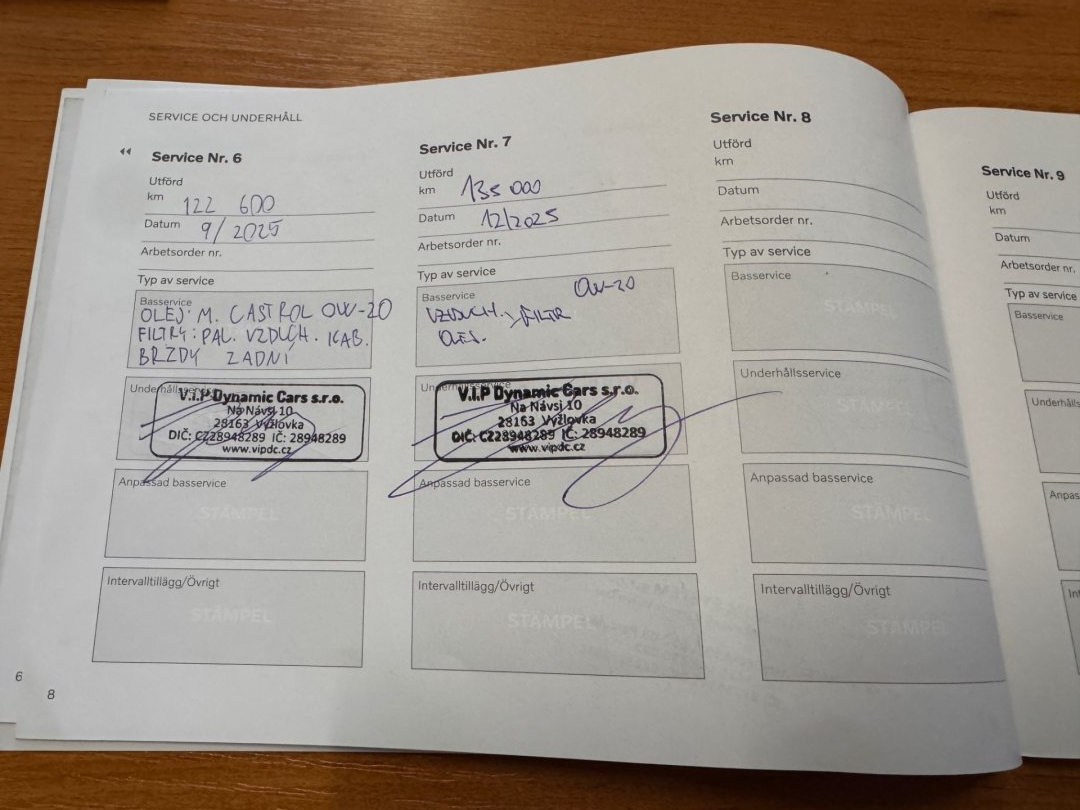 SERVICE OCH UNDERHÅLL
Service Nr. 6
Utförd
km 122 600
Datum 9/2025
Arbetsorder nr.
Typ av service
Basservice
OLEJ: M. CASTROL OW-20
FILTRY: PAL. VZDUCH. KAB.
BRZDY ZADNÍ
Underhållsservice
V.I.P Dynamic Cars s.r.o.
Na Návsi 10
28163 Vyžlovka
DIČ: CZ28948289 IČ: 28948289
www.vipdc.cz
Anpassad basservice
STÄMPEL
Intervalltillägg/Övrigt
STÄMPEL
Service Nr. 7
Utförd
km 135 000
Datum 12/2025
Arbetsorder nr.
Typ av service
Basservice
OW-20
VZDUCH. FILTR
OLEJ.
Underhållsservice
V.I.P Dynamic Cars s.r.o.
Na Návsi 10
28163 Vyžlovka
DIČ: CZ28948289 IČ: 28948289
www.vipdc.cz
Anpassad basservice
STÄMPEL
Intervalltillägg/Övrigt
STÄMPEL
Service Nr. 8
Utförd
km
Datum
Arbetsorder nr.
Typ av service
Basservice
STÄMPEL
Underhållsservice
STÄMPEL
Anpassad basservice
STÄMPEL
Intervalltillägg/Övrigt
STÄMPEL
Service Nr. 9
Utförd
km
Datum
Arbetsorder nr.
Typ av service
Basservice
Underhålls
Anpas
Int
6
8